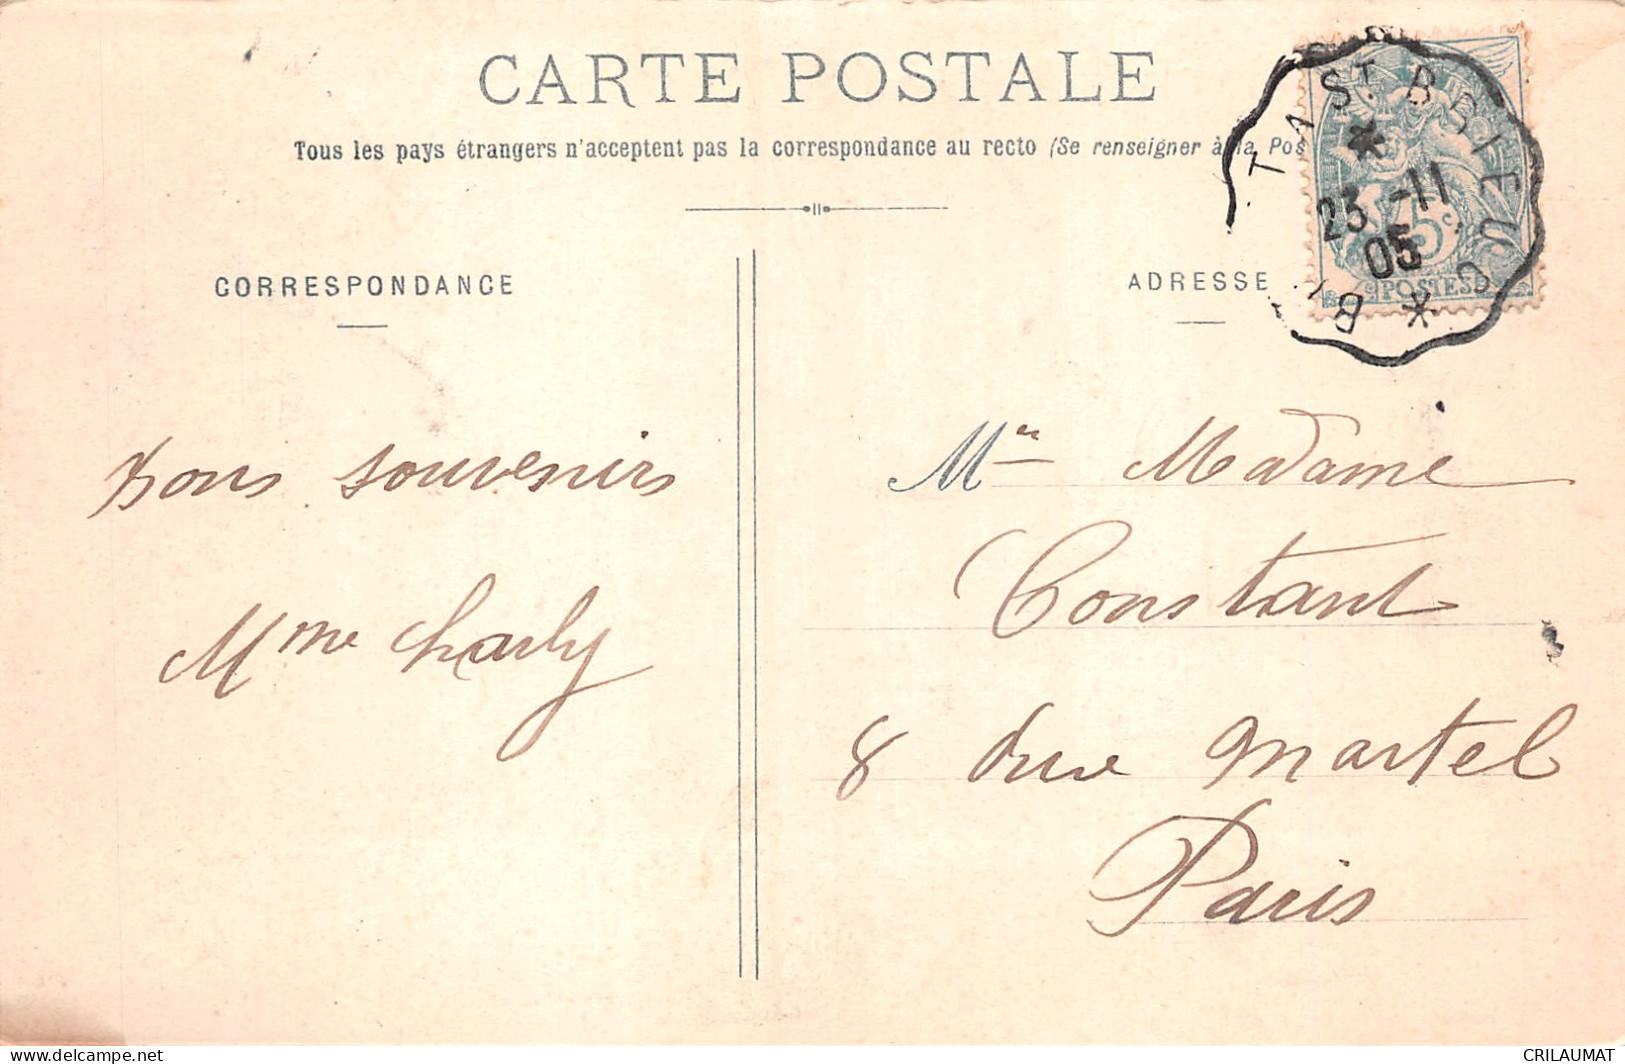 CARTE POSTALE
Tous les pays étrangers n'acceptent pas la correspondance au recto (Se renseigner à la Pos
CORRESPONDANCE
ADRESSE
T A ST BRIEUC
23 -11
05
5c
POSTES
Bons souvenirs
Mme Charly
M Madame
Constant
8 rue Martel
Paris
delcampe.net
CRILAUMAT